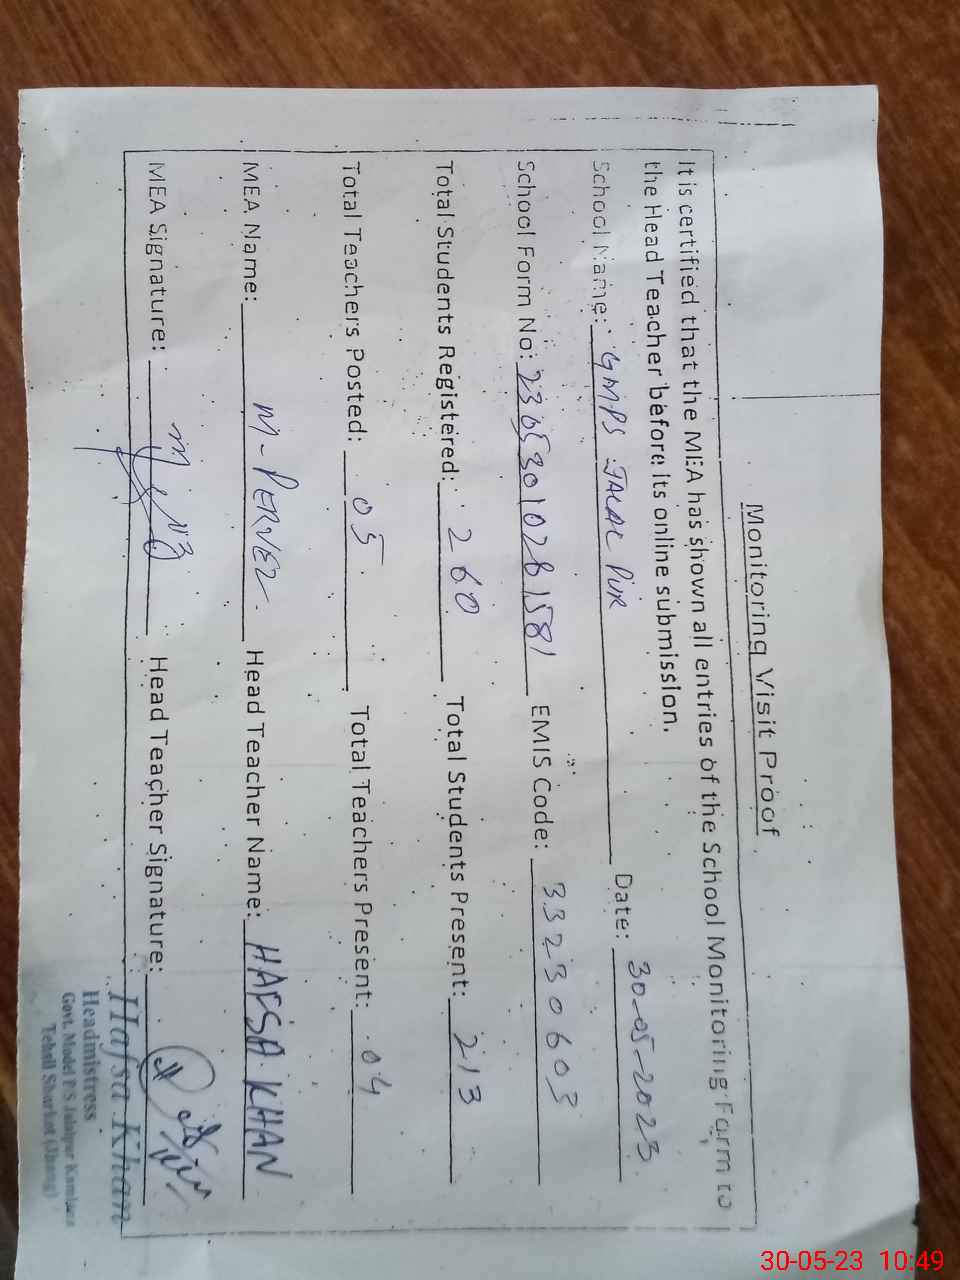 Monitoring Visit Proof
It is certified that the MEA has shown all entries of the School Monitoring Form to
the Head Teacher before its online submission.
School Name: GMPS JALAL PUR Date: 30-05-2023
School Form No: 23053010281581 EMIS Code: 33230603
Total Students Registered: 260 Total Students Present: 213
Total Teachers Posted: 05 Total Teachers Present: 04
MEA Name: M-PERVEZ Head Teacher Name: HAFSA KHAN
MEA Signature: Head Teacher Signature:
Hafsa Khan
Headmistress
Govt. Model P/S Jalalpur
Tehsil Shorkot (Jhang)
30-05-23 10:49